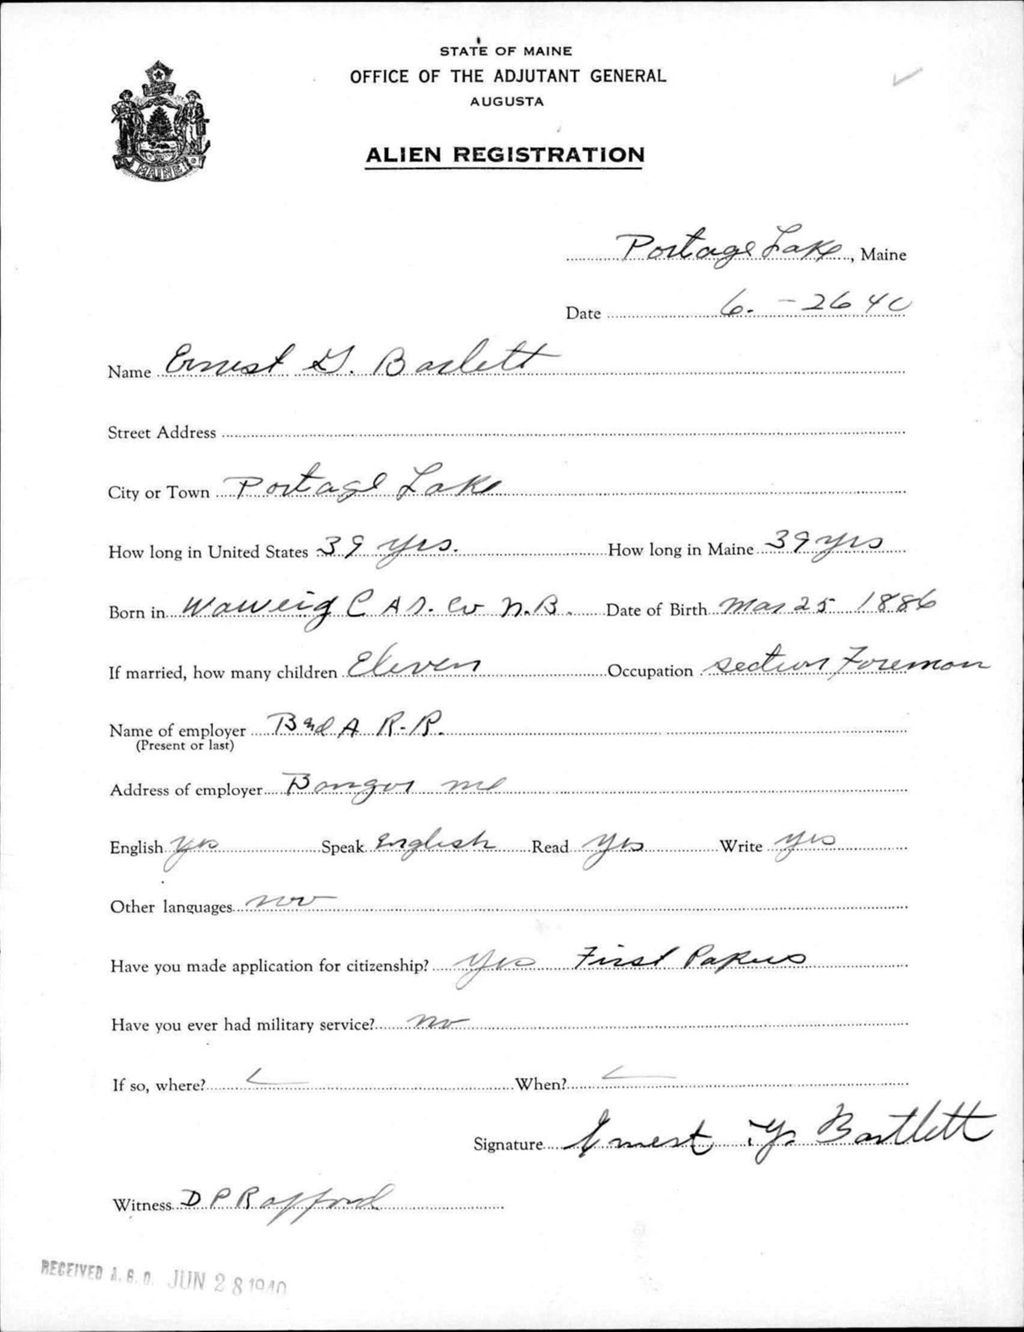 STATE OF MAINE
OFFICE OF THE ADJUTANT GENERAL
AUGUSTA
ALIEN REGISTRATION
MAINE
Portage Lake, Maine
Date 6. - 26 40
Name Ernest G. Barlett
Street Address
City or Town Portage Lake
How long in United States 39 yrs. How long in Maine 39 yrs
Born in Waweig C Co N.B. Date of Birth Mar 25 1886
If married, how many children Eleven Occupation section Foreman
Name of employer B and A R.R.
(Present or last)
Address of employer Bangor me
English yes Speak English Read yes Write yes
Other languages no
Have you made application for citizenship? yes First Papers
Have you ever had military service? no
If so, where? When?
Signature Ernest G. Bartlett
Witness D P Rafford
RECEIVED A. G. O. JUN 28 1940